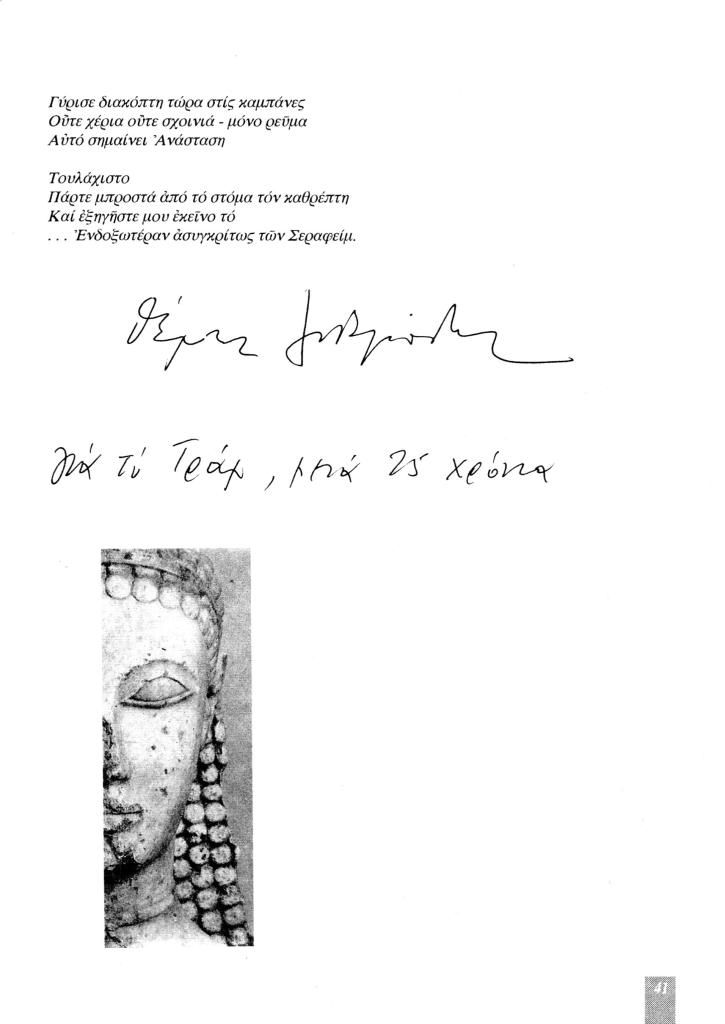 Γύρισε διακόπτη τώρα στίς καμπάνες
Οὔτε χέρια οὔτε σχοινιά - μόνο ρεῦμα
Αὐτό σημαίνει Ἀνάσταση
Τουλάχιστο
Πάρτε μπροστά ἀπό τό στόμα τόν καθρέπτη
Καί ἐξηγῆστε μου ἐκεῖνο τό
... Ἐνδοξωτέραν ἀσυγκρίτως τῶν Σεραφείμ.
γιά τό Τράμ, μετά 25 χρόνια
41